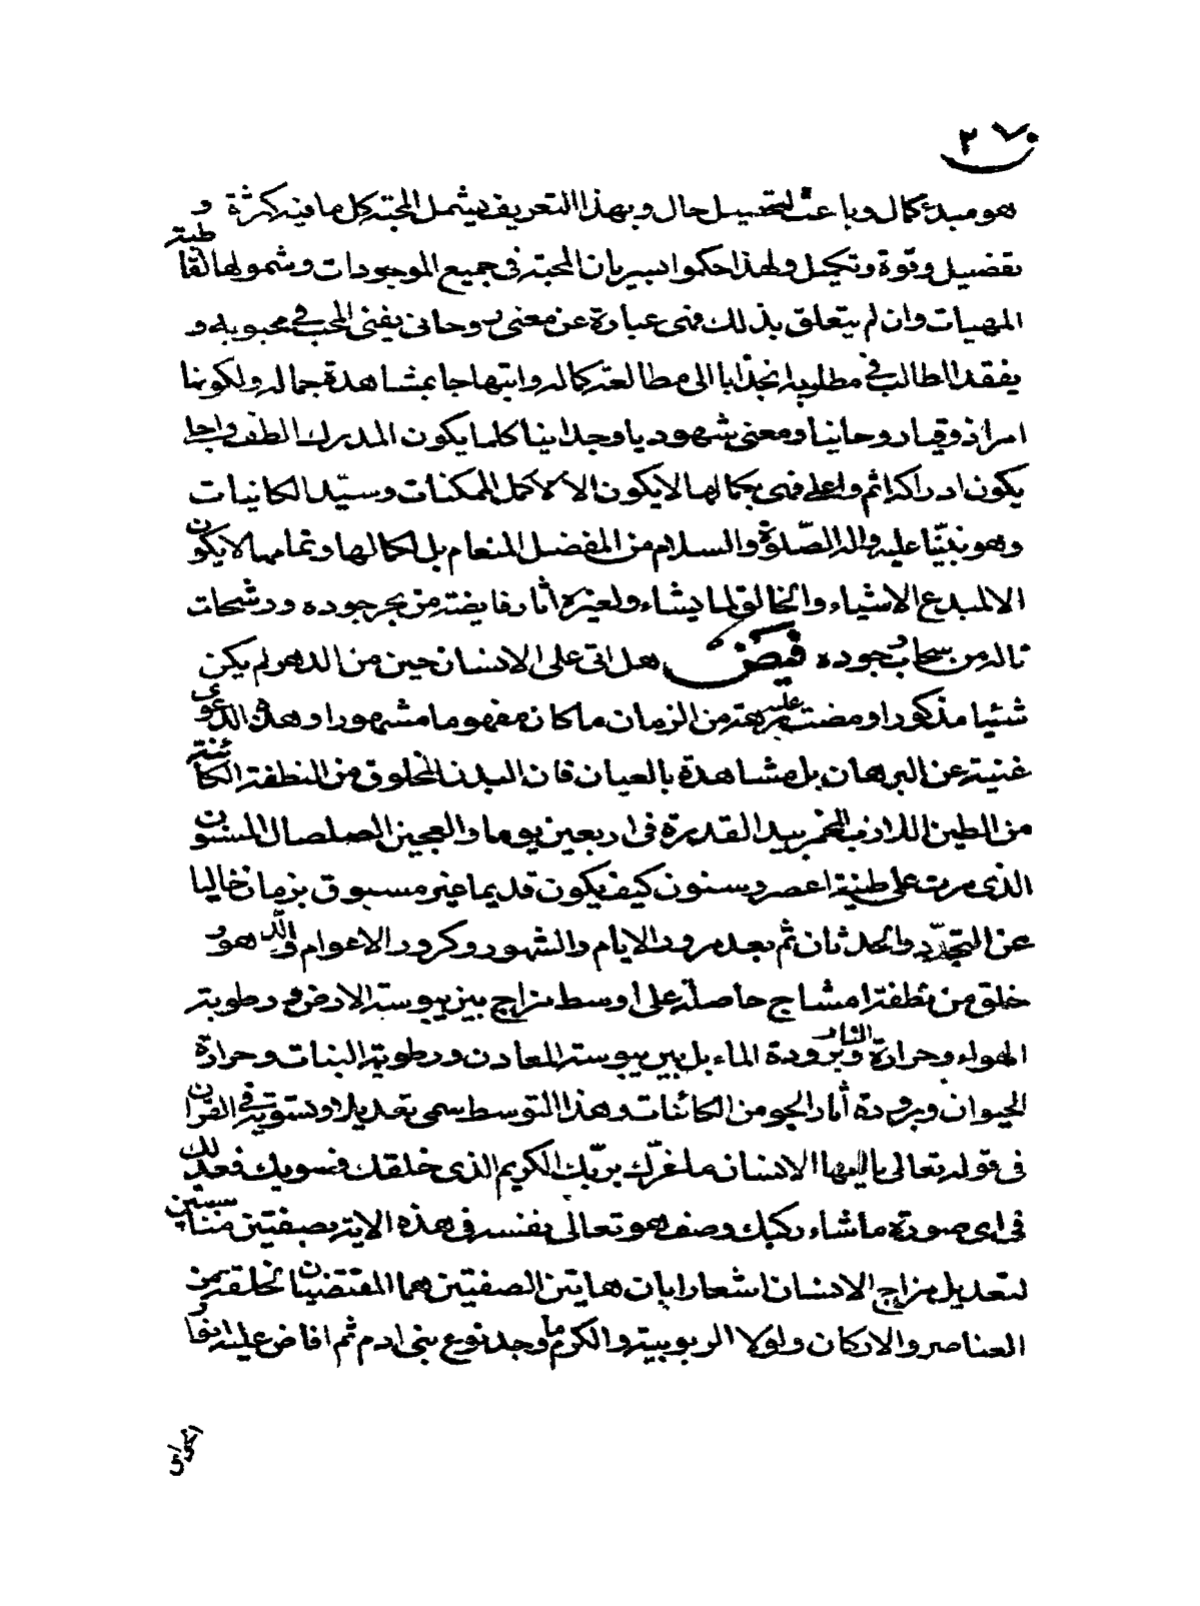 ٢٦٠
هو مبدء كمال وباعث لتحصيل حال وبهذا التعريف يشمل المحبة كل ما فيه كثرة و
تفضيل وقوة وتكميل ولهذا حكموا بسريان المحبة في جميع الموجودات وشمولها لقاطبة
المهيات وان لم يتعلق بذلك فهى عبارة عن معنى روحانى يفنى المحب في محبوبه و
يفقد الطالب في مطلوبه انجذابا الى مطالعة كماله وابتهاجا بمشاهدة جماله ولكونها
امرا ذوقيا روحانيا ومعنى شهوديا وجدانيا كلما يكون المدرك الطف واجلى
يكون ادراكه اتم واعلى فهى بكمالها لا يكون الا لاكمل الممكنات وسيد الكاينات
وهو نبينا عليه واله الصلوة والسلام من المفضل المنعام بل اكمالها وتمامها لا يكون
الا لمبدع الاشياء والخالق لما يشاء ولغيره آثار فايضة من بحر جوده ورشحات
نالة من سحاب وجوده فيض هل اتى على الانسان حين من الدهر لم يكن
شيئا مذكورا ومضت عليه برهة من الزمان ما كان مفهوما مشهورا وهذه الدعوى
غنية عن البرهان بل مشاهدة بالعيان فان البدن المخلوق من النطفة الكائنة
من الطين اللازب المخمر بيد القدرة في اربعين يوما والعجين الصلصال المسنون
الذى مرت على طينه اعصر وسنون كيف يكون قديما غير مسبوق بزمان خاليا
عن التجدد والحدثان ثم بعد مرور الايام والشهور وكرور الاعوام والدهور
خلق من نطفة امشاج حاصلة على اوسط مزاج بين يبوسة الارض و رطوبة
الهواء وحرارة النار وبرودة الماء بل بين يبوسة المعادن ورطوبة النبات وحرارة
الحيوان وبرودة آثار الجو من الكائنات وهذا التوسط سمى تعديلا وتسوية في القران
في قوله تعالى يا ايها الانسان ما غرك بربك الكريم الذى خلقك فسويك فعدلك
في اى صورة ما شاء ركبك وصف هو تعالى نفسه في هذه الاية بصفتين مناسبتين
لتعديل مزاج الانسان اشعارا بان هاتين الصفتين هما المقتضيتان لخلقه من
العناصر والاركان ولولا الربوبية والكرم ما وجد نوع بنى ادم ثم افاض عليه انوا